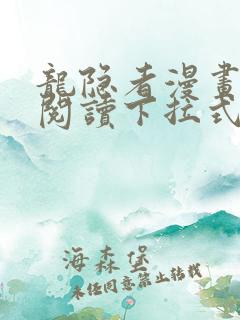 龍隐者漫畫
閱讀下拉式
海森堡
未经同意禁止转载